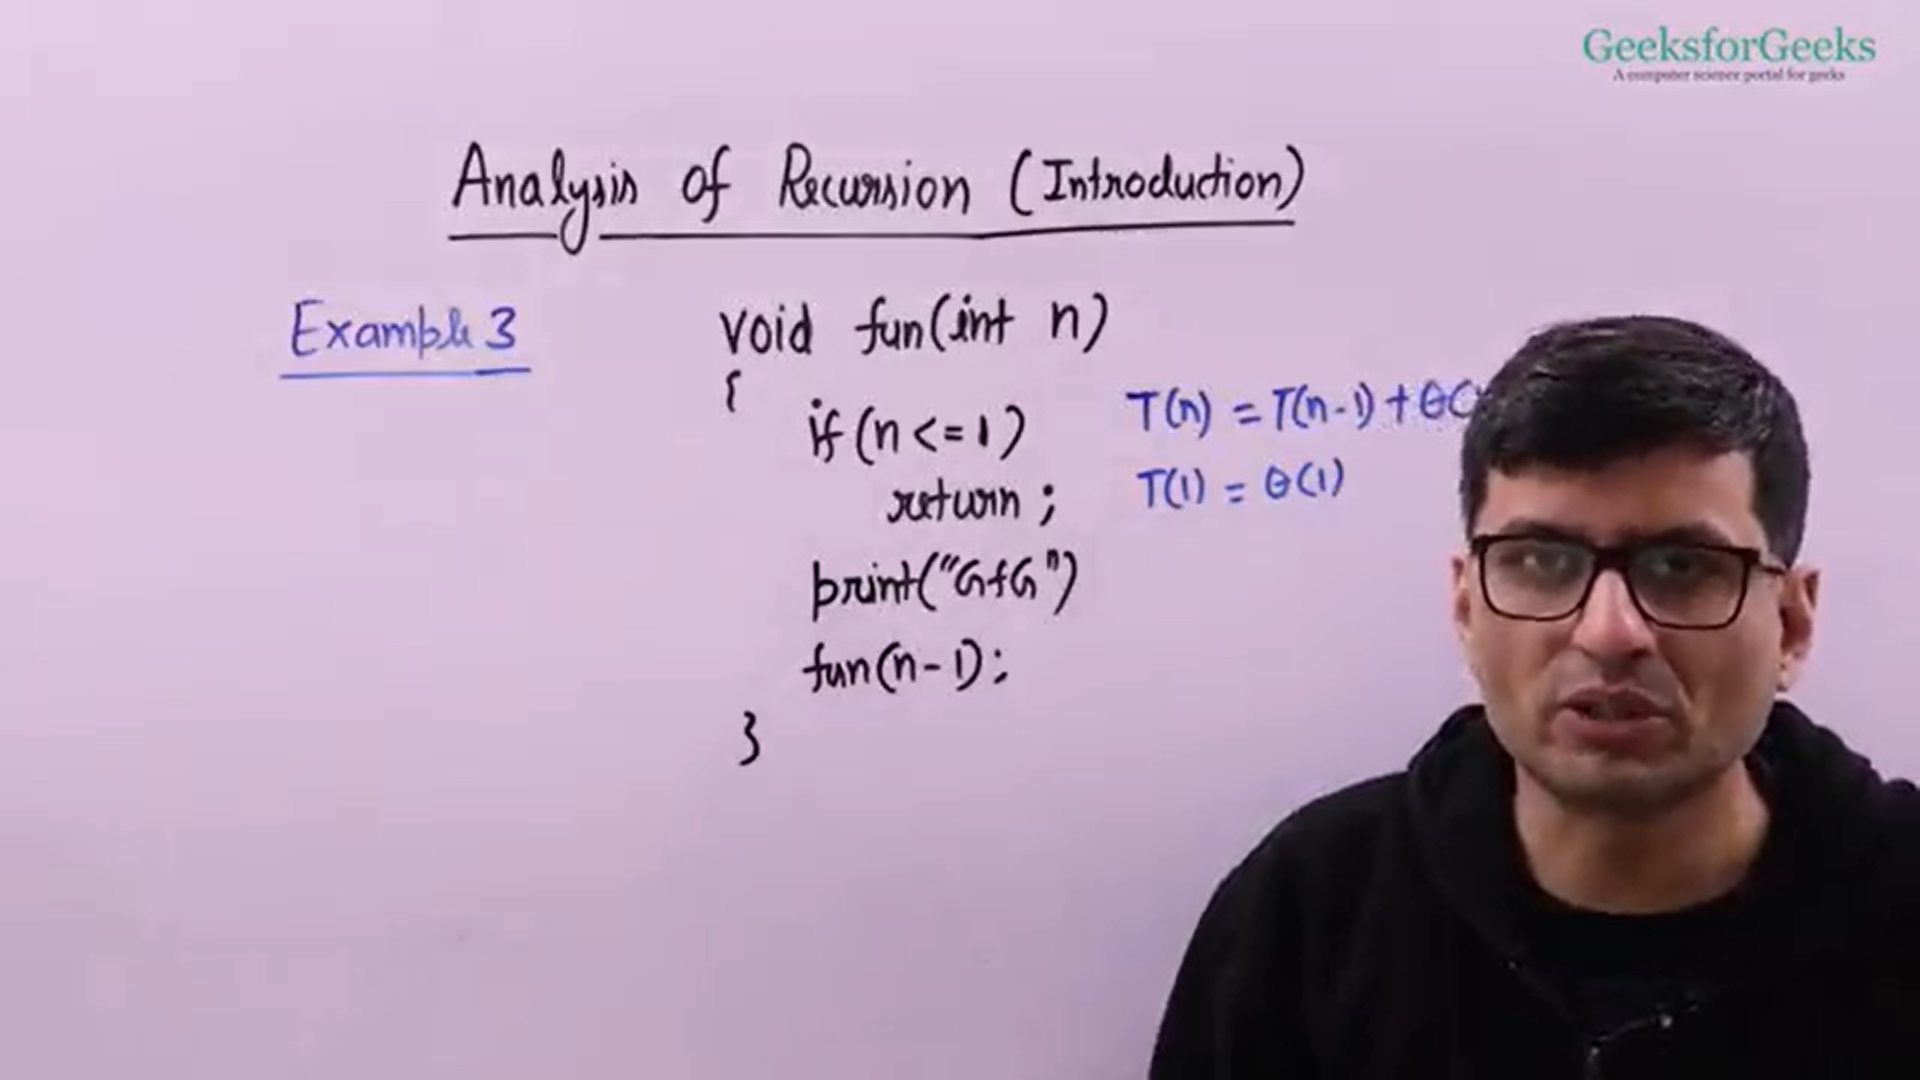 GeeksforGeeks
A computer science portal for geeks
Analysis of Recursion (Introduction)
Example 3
void fun(int n)
{
if (n <= 1)
return ;
print("GfG")
fun(n-1);
}
T(n) = T(n-1) + Θ(
T(1) = Θ(1)